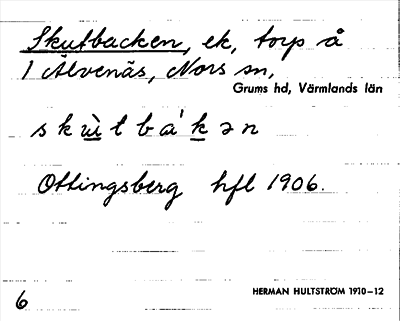 Skutbacken, ek, torp å
1 Älvenäs, Nors sn,
Grums hd, Värmlands län
s k ù̀ t b a´ k ə n
Ottingsberg hfl 1906.
HERMAN HULTSTRÖM 1910-12
6